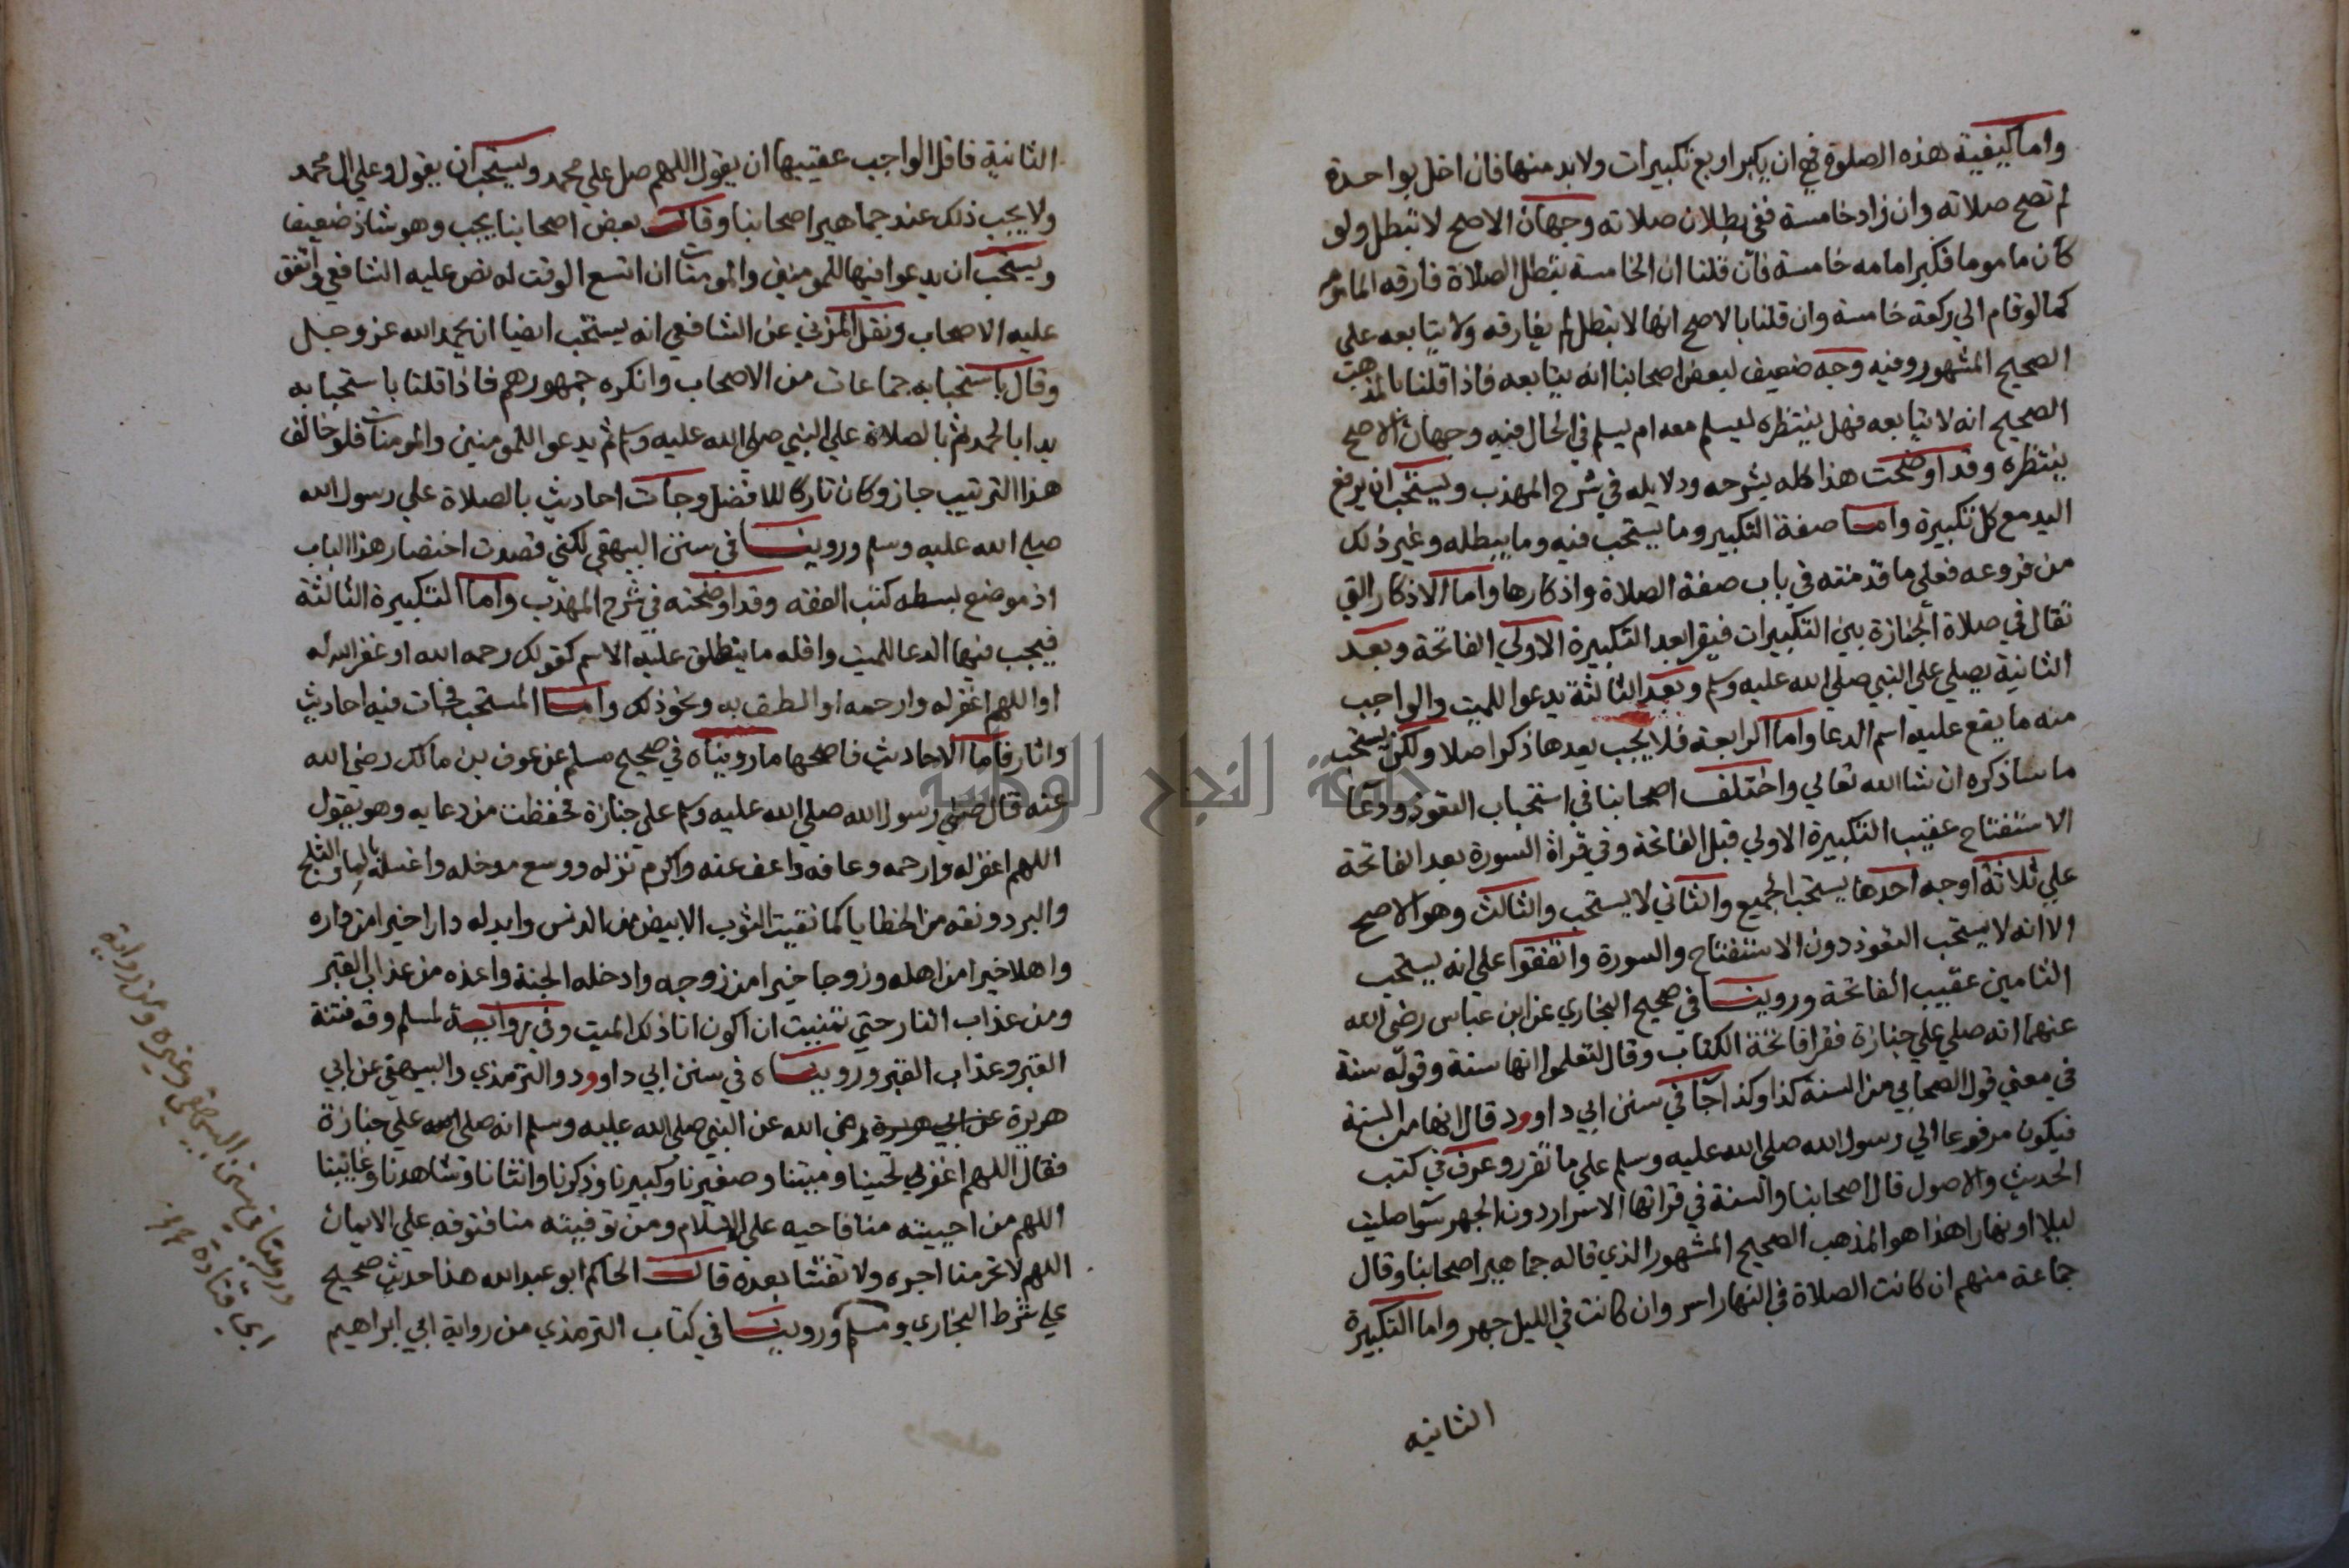 واما كيفية هذه الصلوة فهي ان يكبر اربع تكبيرات ولا بد منها فان اخل بواحدة
لم تصح صلاته وان زاد خامسة ففي بطلان صلاته وجهان الاصح لا تبطل ولو
كان ماموما فكبر امامه خامسة فان قلنا ان الخامسة تبطل الصلاة فارقه الماموم
كما لو قام الي ركعة خامسة وان قلنا بالاصح انها لا تبطل لم يفارقه ولا يتابعه علي
الصحيح المشهور وفيه وجه ضعيف لبعض اصحابنا انه يتابعه فاذا قلنا بالمذهب
الصحيح انه لا يتابعه فهل ينتظره ليسلم معه ام يسلم في الحال فيه وجهان الاصح
ينتظره وقد اوضحت هذا كله بشرحه ودلايله في شرح المهذب ويستحب ان يرفع
اليد مع كل تكبيرة واما صفة التكبير وما يستحب فيه وما يبطله وغير ذلك
من فروعه فعلي ما قدمته في باب صفة الصلاة واذكارها واما الاذكار التي
تقال في صلاة الجنازة بين التكبيرات فيقرا بعد التكبيرة الاولي الفاتحة وبعد
الثانية يصلي علي النبي صلي الله عليه وسلم وبعد الثالثة يدعوا للميت والواجب
منه ما يقع عليه اسم الدعا واما الرابعة فلا يجب بعدها ذكر اصلا ولكن يستحب
ما ساذكره ان شا الله تعالي واختلف اصحابنا في استحباب التعوذ ودعا
الاستفتاح عقيب التكبيرة الاولي قبل الفاتحة وفي قراة السورة بعد الفاتحة
علي ثلاثة اوجه احدها يستحب الجميع والثاني لا يستحب والثالث وهو الاصح
الا انه لا يستحب التعوذ دون الاستفتاح والسورة واتفقوا علي انه يستحب
التامين عقيب الفاتحة وروينا في صحيح البخاري عن ابن عباس رضي الله
عنهما انه صلي علي جنازة فقرا فاتحة الكتاب وقال لتعلموا انها سنة وقوله سنة
في معني قول الصحابي من السنة كذا وكذا جا في سنن ابي داوود قال انها من السنة
فيكون مرفوعا الي رسول الله صلي الله عليه وسلم علي ما تقرر وعرف في كتب
الحديث والاصول قال اصحابنا والسنة في قراتها الاسرار دون الجهر سوا صليت
ليلا او نهارا هذا هو المذهب الصحيح المشهور الذي قاله جماهير اصحابنا وقال
جماعة منهم ان كانت الصلاة في النهار اسر وان كانت في الليل جهر واما التكبيرة
الثانيه
الثانية فاقل الواجب عقيبها ان يقول اللهم صل علي محمد ويستحب ان يقول وعلي ال محمد
ولا يجب ذلك عند جماهير اصحابنا وقال بعض اصحابنا يجب وهو شاذ ضعيف
ويستحب ان يدعوا فيها للمومنين والمومنات ان اتسع الوقت له نص عليه الشافعي واتفق
عليه الاصحاب ونقل المزني عن الشافعي انه يستحب ايضا ان يحمد الله عز وجل
وقال باستحبابه جماعات من الاصحاب وانكره جمهورهم فاذا قلنا باستحبابه
بدا بالحمد ثم بالصلاة علي النبي صلي الله عليه وسلم ثم يدعوا للمومنين والمومنات فلو خالف
هذا الترتيب جاز وكان تاركا للافضل وجات احاديث بالصلاة علي رسول الله
صلي الله عليه وسلم وروينا في سنن البيهقي لكني قصدت اختصار هذا الباب
اذ موضع بسطه كتب الفقه وقد اوضحته في شرح المهذب واما التكبيرة الثالثة
فيجب فيها الدعا للميت واقله ما ينطلق عليه الاسم كقولك رحمه الله او غفر الله له
او اللهم اغفر له وارحمه او الطف به ونحو ذلك واما المستحب فجات فيه احاديث
واثار فاما الاحاديث فاصحها ما رويناه في صحيح مسلم عن عوف بن مالك رضي الله
عنه قال صلي رسول الله صلي الله عليه وسلم علي جنازة فحفظت من دعايه وهو يقول
اللهم اغفر له وارحمه وعافه واعف عنه واكرم نزله ووسع مدخله واغسله بالما والثلج
والبرد ونقه من الخطايا كما نقيت الثوب الابيض من الدنس وابدله دارا خيرا من داره
واهلا خيرا من اهله وزوجا خيرا من زوجه وادخله الجنة واعذه من عذاب القبر
ومن عذاب النار حتي تمنيت ان اكون انا ذلك الميت وفي رواية لمسلم وقه فتنة
القبر وعذاب القبر ورويناه في سنن ابي داوود والترمذي والبيهقي عن ابي
هريرة عن ابي هريرة رضي الله عن النبي صلي الله عليه وسلم انه صلي الله علي جنازة
فقال اللهم اغفر لحينا وميتنا وصغيرنا وكبيرنا وذكرنا وانثانا وشاهدنا وغايبنا
اللهم من احييته منا فاحيه علي الاسلام ومن توفيته منا فتوفه علي الايمان
اللهم لا تحرمنا اجره ولا تفتنا بعده قال الحاكم ابو عبدالله هذا حديث صحيح
علي شرط البخاري ومسلم وروينا في كتاب الترمذي من رواية ابي ابراهيم
ورويناه في سنن البيهقي وغيره من رواية
ابي قتادة
جامعة النجاح الوطنية